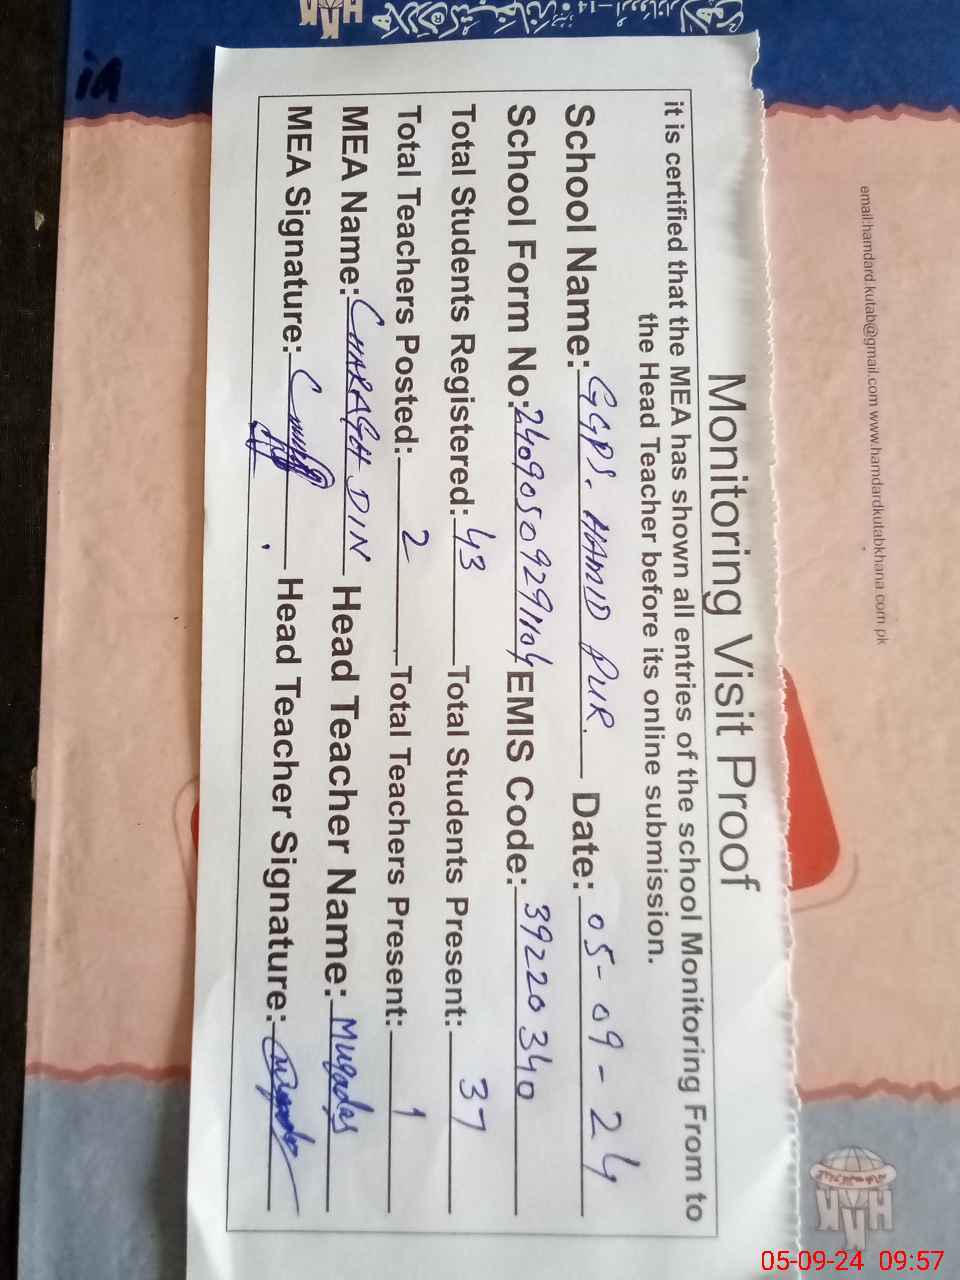 Monitoring Visit Proof
it is certified that the MEA has shown all entries of the school Monitoring From to
the Head Teacher before its online submission.
School Name: GGPS. HAMID PUR. Date: 05-09-24
School Form No: 24090509291104 EMIS Code: 39220340
Total Students Registered: 43 Total Students Present: 37
Total Teachers Posted: 2 Total Teachers Present: 1
MEA Name: CHARAGH DIN Head Teacher Name: Muqadas
MEA Signature: Head Teacher Signature:
email:hamdard.kutab@gmail.com www.hamdardkutabkhana.com.pk
05-09-24 09:57